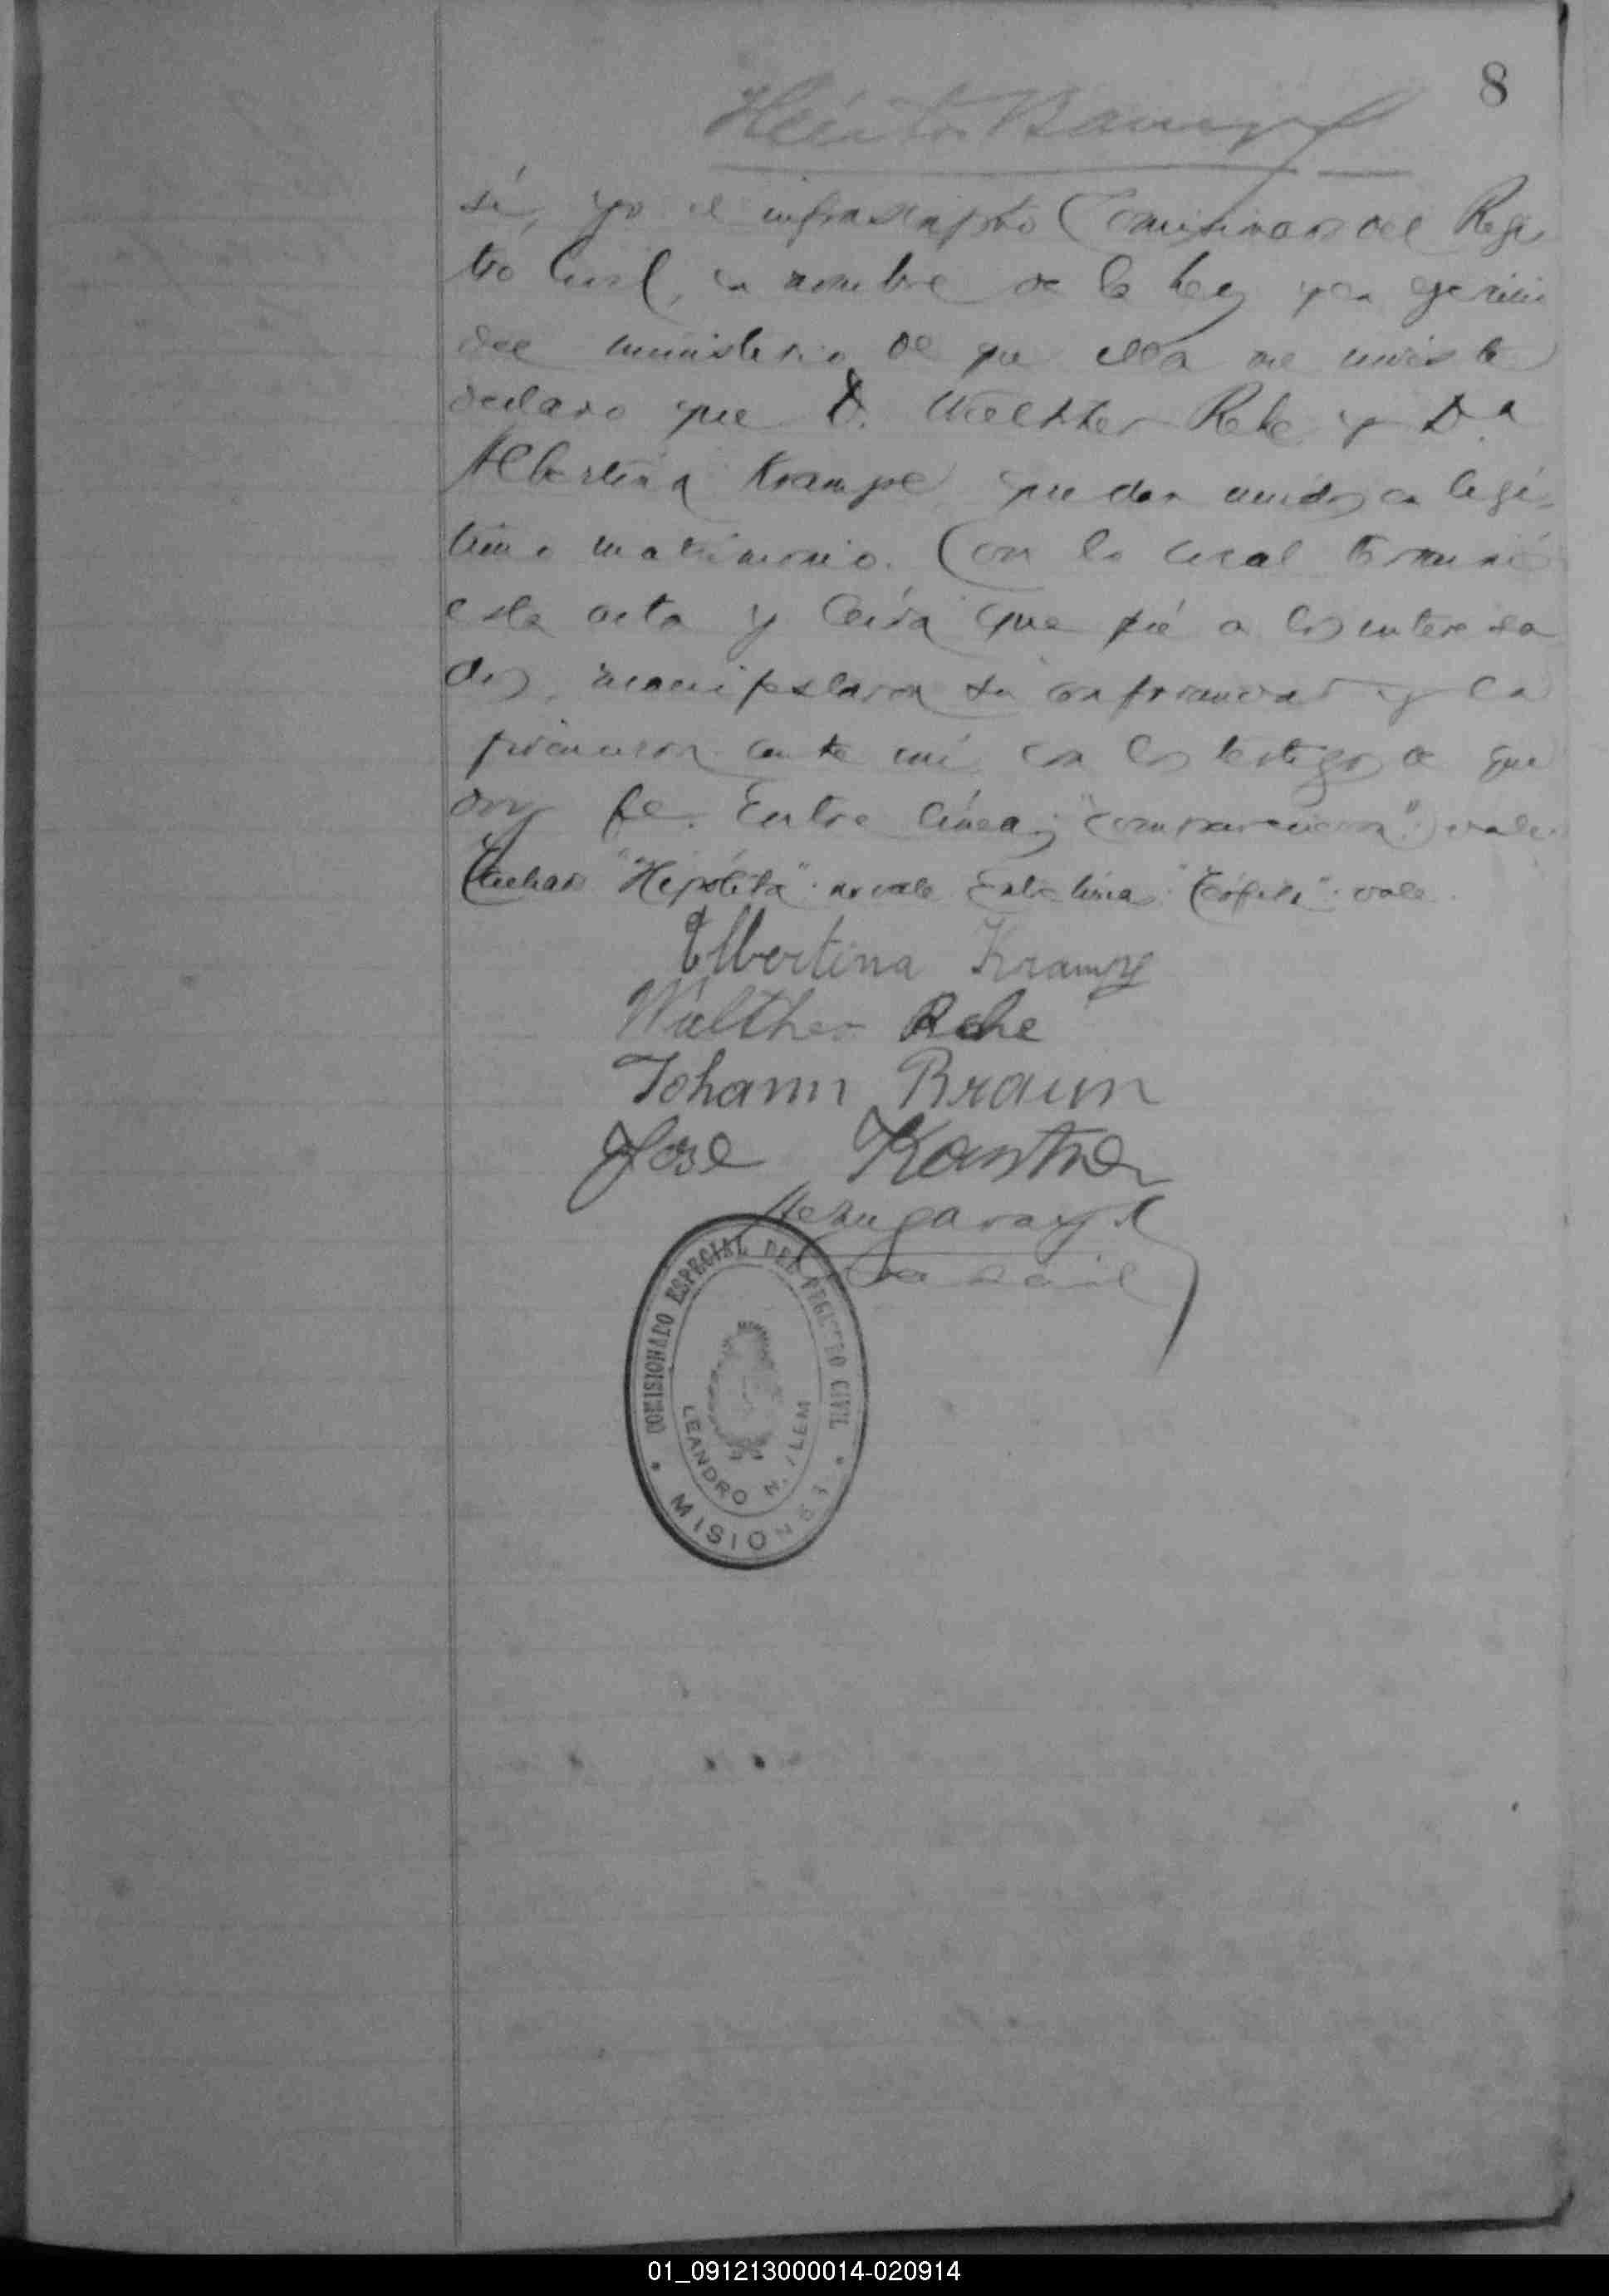 8
Héctor Bar
sí, yo el infrascripto Comisionado del Regis
tro Civil, en nombre de la Ley y en ejercicio
del ministerio de que ella me inviste
declaro que D. Walther Rehe y Da
Albertina Krampe quedan unidos en legí-
timo matrimonio. Con lo cual terminó
esta acta y leída que fué a los interesa
dos, manifestaron su conformidad y la
firmaron ante mí con los testigos de que
doy fe. Entre líneas "comparecieron" vale.
Tachado "Hipólita" no vale Entre líneas "Teófila" vale.
Albertina Krampe
Walther Rehe
Johann Braun
José Kastner
COMISIONADO ESPECIAL DEL REGISTRO CIVIL
LEANDRO N. ALEM
MISIONES
01_091213000014-020914